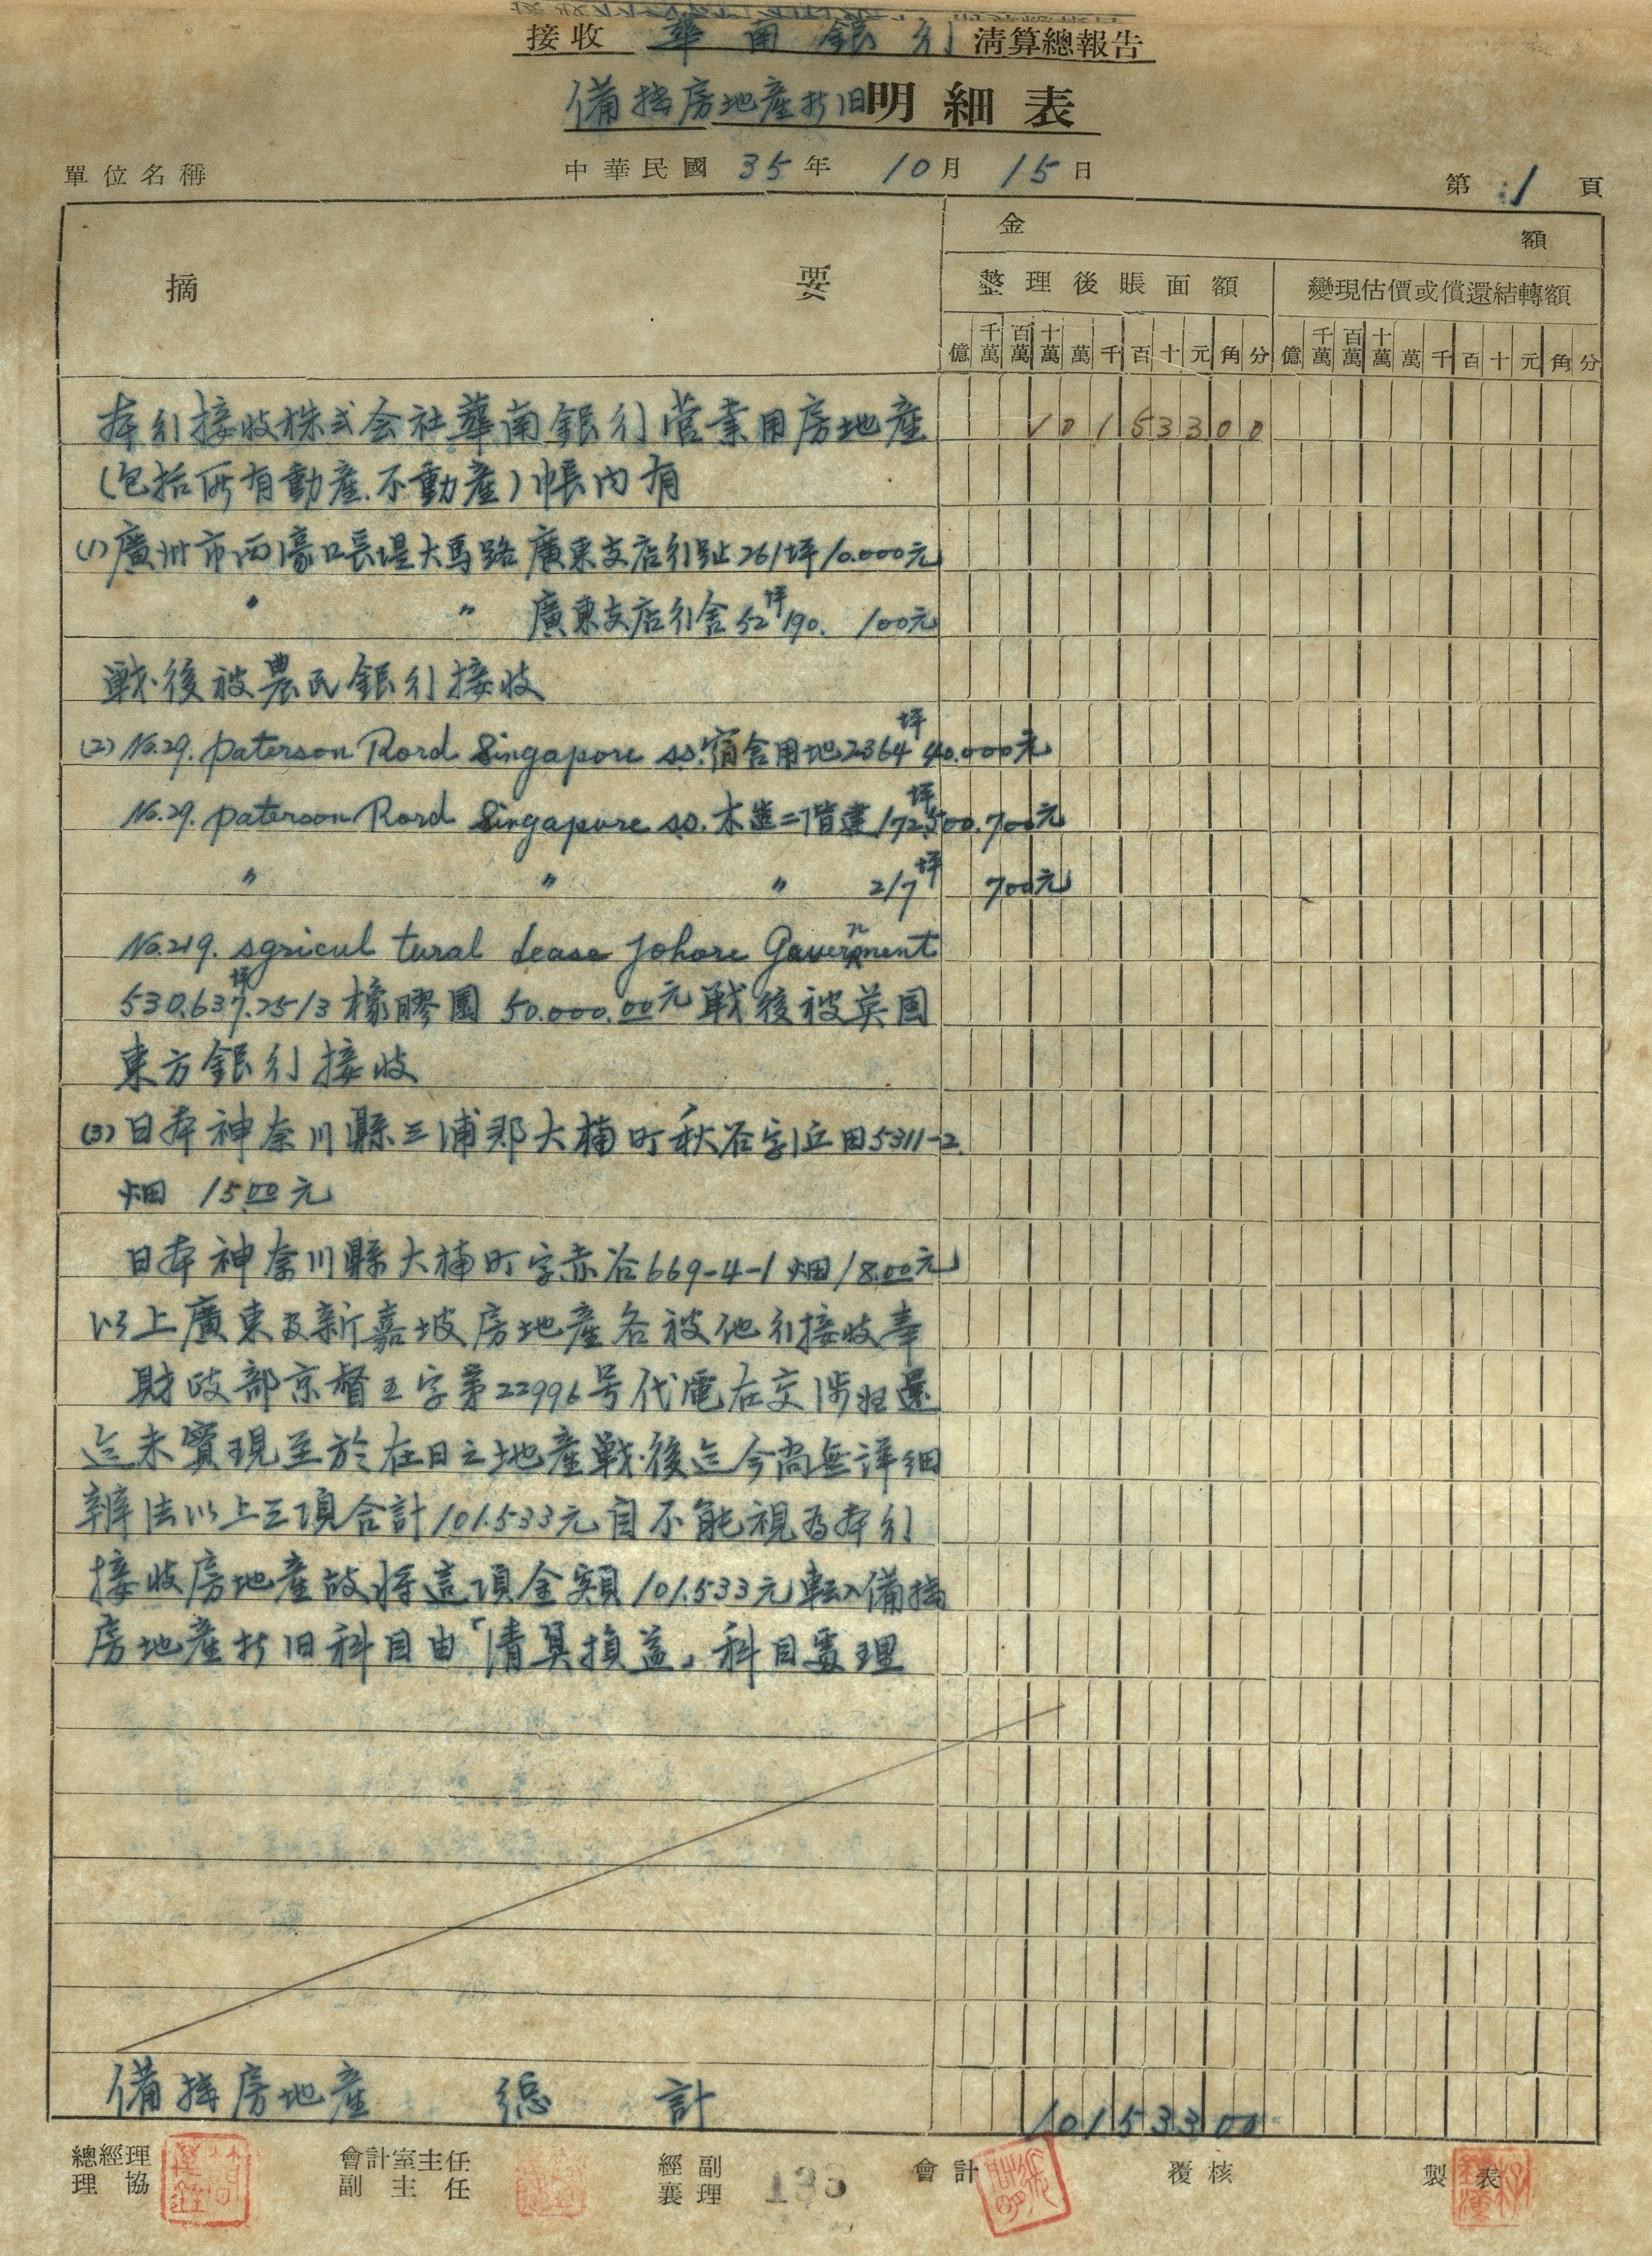 接收 華南銀行 清算總報告
備抵房地產折旧明細表
單位名稱 中華民國 35年 10月 15日 第 1 頁
摘要 金額
整理後賬面額 變現估價或償還結轉額
億 千萬 百萬 十萬 萬 千 百 十 元 角 分 億 千萬 百萬 十萬 萬 千 百 十 元 角 分
本行接收株式会社華南銀行营業用房地產 10153300
(包括所有動產.不動產)帳内有
(1)廣州市西濠口長堤大馬路 廣東支店行址261坪10.000元
〃 〃 廣東支店行舍52坪190. 100元
戰後被農民銀行接收
(2) No.29. Paterson Rord Singapore s.s.宿舍用地2364坪40.000元
No.29. Paterson Rord Singapure s.s.木造二階建172坪500.700元
〃 〃 〃 217坪 700元
No.219. sgricul tural lease Johore Government
530.637坪.25/3橡膠園 50.000.00元戰後被英国
東方銀行接收
(3)日本神奈川縣三浦郡大楠町秋谷字丘田5311-2
畑 15.00元
日本神奈川縣大楠町字赤谷669-4-1畑18.00元
以上廣東及新嘉坡房地產各被他行接收奉
財政部京督五字第22996号代電在交涉归還
迄未實現至於在日之地產戰後迄今尚無詳細
辦法以上三項合計101.533元自不能視為本行
接收房地產故將這項金額101.533元転入備抵
房地產折旧科目由「清算損益」科目處理
備抵房地產 總計 10153300
總經理 會計室主任 經副 會計 覆核 製表
協理 副主任 襄理 136